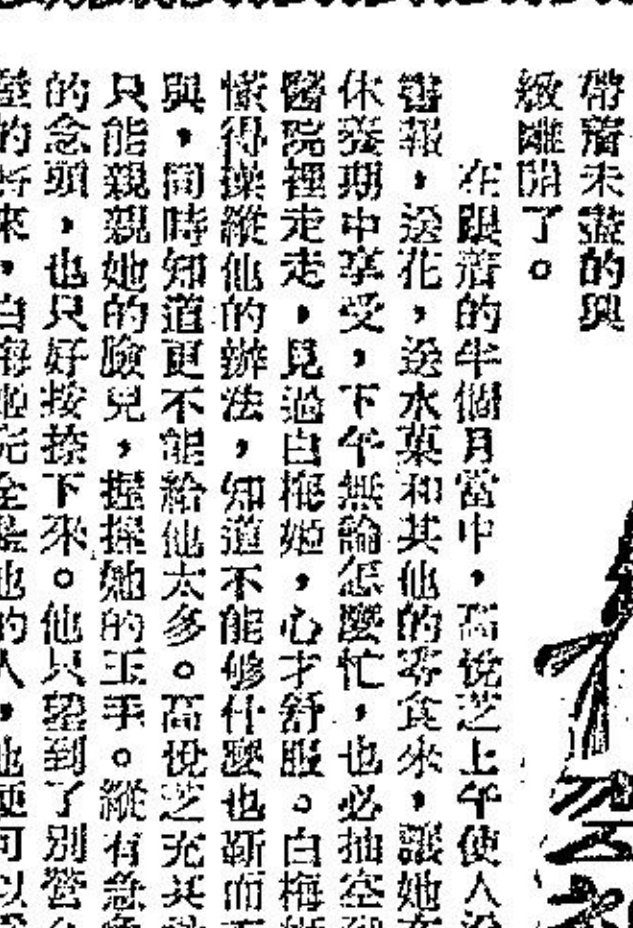 帶着未盡的興
緻離開了。
在跟着的半個月當中，高悅芝上午使人送
書報，送花，送水菓和其他的零食來，讓她在
休養期中享受，下午無論怎麼忙，也必抽空到
醫院裡走走，見過白梅姬，心才舒服。白梅姬
懂得操縱他的辦法，知道不能够什麼也靳而不
與，同時知道更不能給他太多。高悅芝充其
只能親親她的臉兒，握握她的玉手。縱有急
的念頭，也只好按捺下來。他只望到了別營
的將來，白梅姬完全是他的人，他便可以